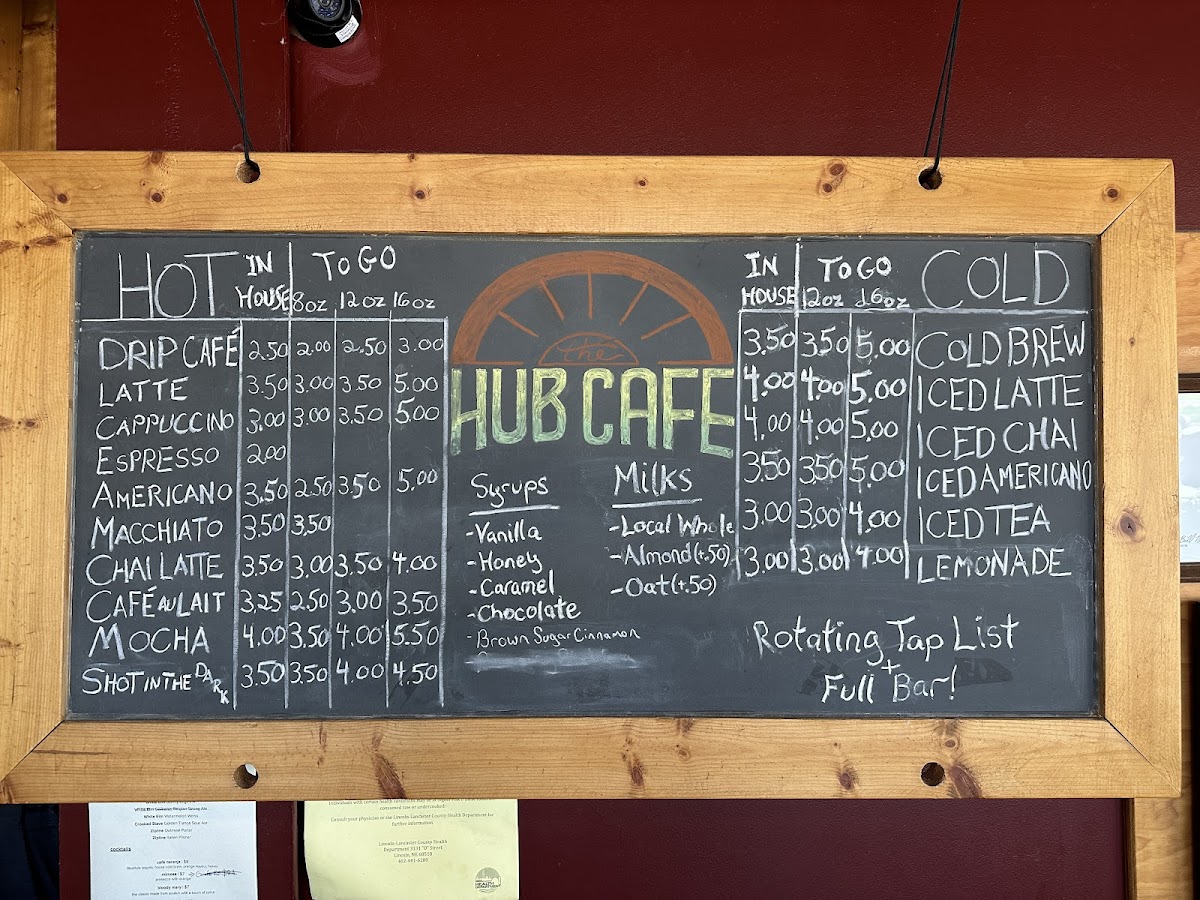 HOT IN HOUSE TO GO
8oz 12oz 16oz
DRIP CAFÉ 2.50 2.00 2.50 3.00
LATTE 3.50 3.00 3.50 5.00
CAPPUCCINO 3.00 3.00 3.50 5.00
ESPRESSO 2.00
AMERICANO 3.50 2.50 3.50 5.00
MACCHIATO 3.50 3.50
CHAI LATTE 3.50 3.00 3.50 4.00
CAFÉ AU LAIT 3.25 2.50 3.00 3.50
MOCHA 4.00 3.50 4.00 5.50
SHOT IN THE DARK 3.50 3.50 4.00 4.50
the
HUB CAFE
Syrups
-Vanilla
-Honey
-Caramel
-Chocolate
-Brown Sugar Cinnamon
Milks
-Local Whole
-Almond (+.50)
-Oat (+.50)
IN HOUSE TO GO COLD
12oz 16oz
3.50 3.50 5.00 COLD BREW
4.00 4.00 5.00 ICED LATTE
4.00 4.00 5.00 ICED CHAI
3.50 3.50 5.00 ICED AMERICANO
3.00 3.00 4.00 ICED TEA
3.00 3.00 4.00 LEMONADE
Rotating Tap List
+
Full Bar!
cocktails
bloody mary: $7
Consult your physician or the Lincoln-Lancaster County Health Department for
further information.
Lincoln-Lancaster County Health
Department 3131 "O" Street
Lincoln, NE 68510
402-441-6280